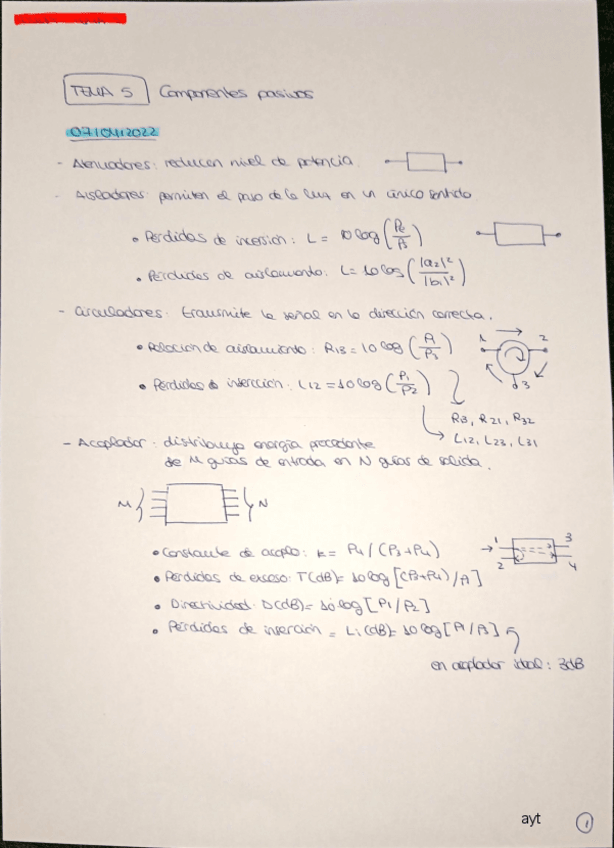 TEMA 5 Componentes pasivos
07/04/2022
- Atenuadores: reducen nivel de potencia.
- Aisladores: permiten el paso de la luz en un único sentido
• Pérdidas de inserción: L = 10log(Pe/Ps)
• Pérdidas de aislamiento: L = 10log(|a₂|²/|b₁|²)
- Circuladores: transmite la señal en la dirección correcta.
• Relación de aislamiento: R13 = 10log(P1/P3)
1 2
3
• Pérdidas de inserción: L12 = 10log(P1/P2)
R13, R21, R32
L12, L23, L31
- Acoplador: distribuye energía procedente
de M guías de entrada en N guías de salida.
M N
• Constante de acoplo: k = P4/(P3+P4)
1 3
2 4
• Pérdidas de exceso: T(dB) = 10log[(P3+P4)/P1]
• Directividad: D(dB) = 10log[P1/P2]
• Pérdidas de inserción = Li(dB) = 10log[P1/P3]
en acoplador ideal: 3dB
ayt 1